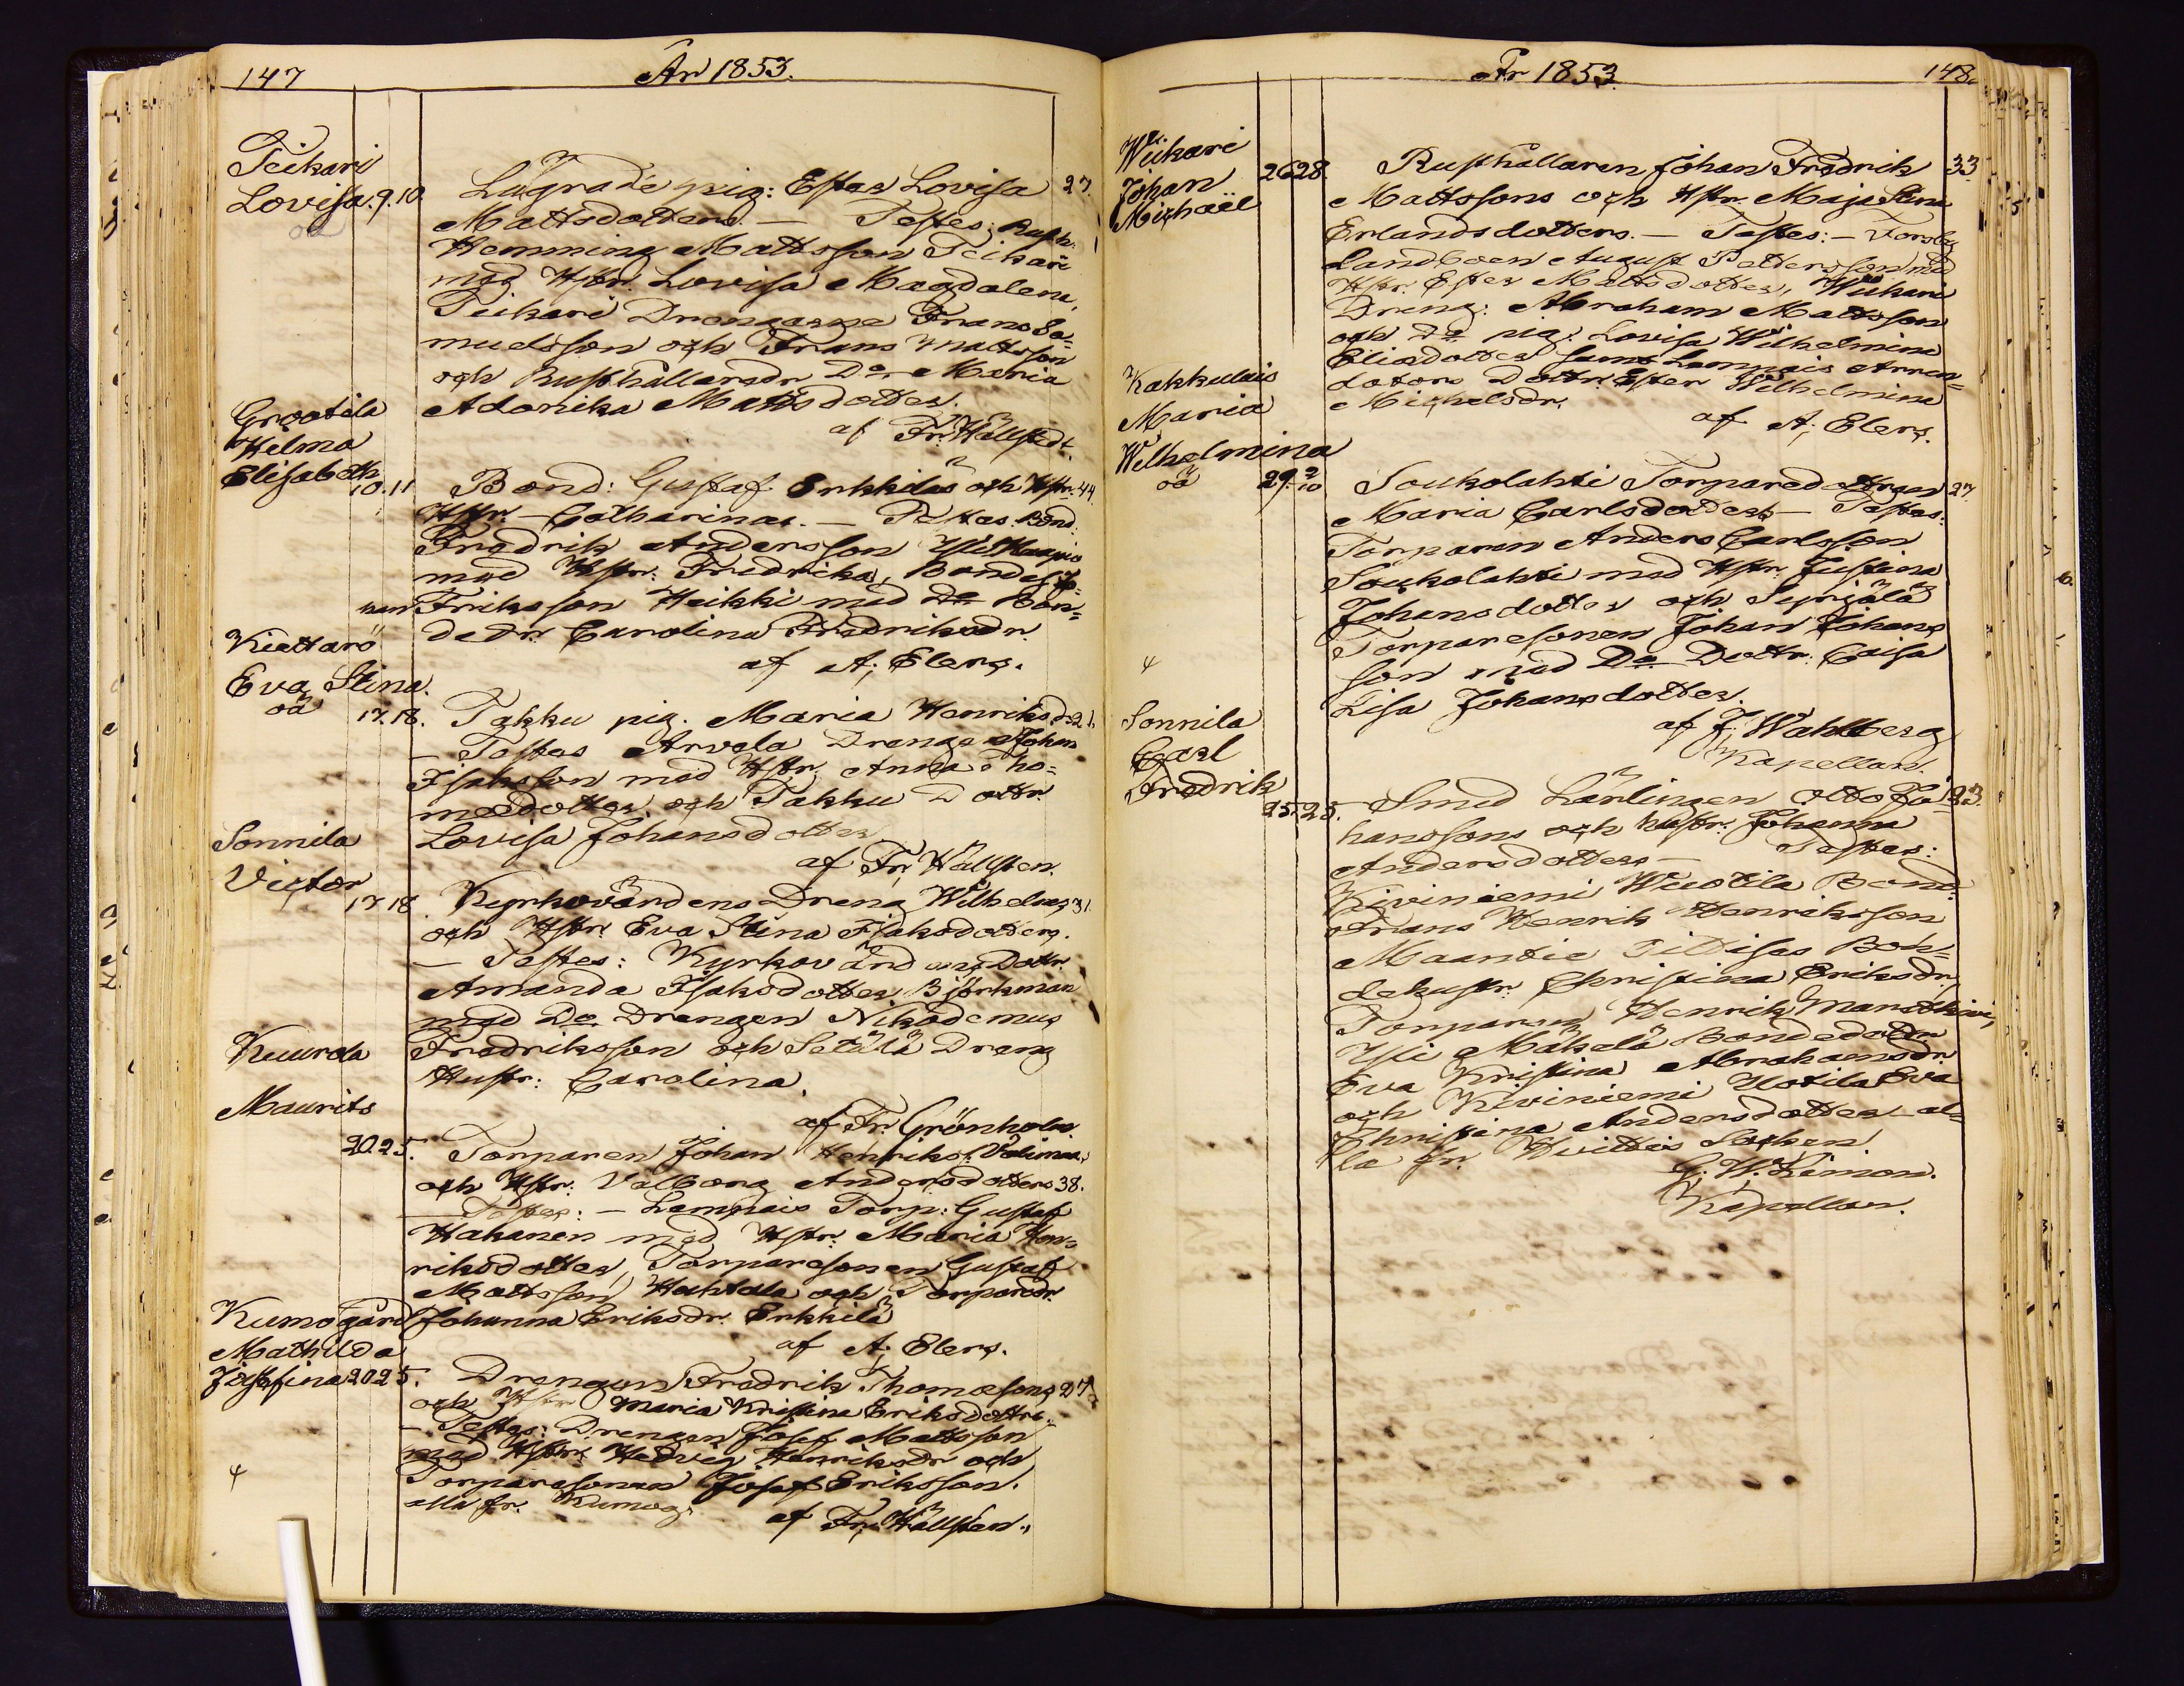 147
År 1853.
Teikari
Lovisa. 9. 10.
oä
Lägrade pig: Ester Lovisa 27.
Mattsdotters. — Testes: Rusth:
Hemming Mattsson Teikari
med Hstr. Lovisa Magdalena,
Teikari Drengarne Frans Sa-
muelsson och Frans Mattsson
och Rusthållarsdr. Do Maria
Adorika Mattsdotter.
af Fr. Hällstedt.
Grootila
Helma
Elisabeth
10. 11
Bond: Gustaf Erkkilas och Hstr. 44
Hstr. Catharinas. — Testes. Bond.
Fredrik Andersson
med Hstr. Fredrika, Bonde Jo-
han Eriksson Heikki med Do Bon-
dedr. Carolina Fredriksdr.
af A; Elers.
Kiettarö
Eva Stina.
oä 17. 18.
Takku pig. Maria Henriksdr 21.
— Testes Arvela Dreng Johan
Isaksson med Hstr. Anna Tho-
masdotter och Takku Dottr.
Lovisa Johansdotter
af Fr. Hällsten.
Sonnila
Victor
17 18
Kyrkovärdens Dreng Wilhelms 31.
och Hstr. Eva Stina Isaksdotters.
— Testes: Kyrkovärd Dottr.
Amanda Isaksdotter Björkman
med Do. Drengen Nikodemus
Fredriksson och Setälä Dreng
Hustr: Carolina.
af Fr. Grönholm
Kuurola
Maurits
20. 25.
Torparen Johan Henriks. Välimaa,
och Hstr. Valborg Andersdotters 38.
— Testes: — Lempais Torp: Gustaf
Hakanen med Hstr. Maria Hen-
riksdotter, Torparesonen Gustaf
Mattsson Huhtala och Torparedr.
Johanna Eriksdr. Erkkilä
af A; Elers.
Kumogård
Mathilda
Josefina 20 25.
Drengen Fredrik Thomasons 27
och Hstr Maria Kristina Eriksdottrs.
— Testes: Drengen Josef Mattsson
med Hstr. Hedvig Henriksdr och
Torparesonen Josef Eriksson.
alla fr. Kumog:
af Fr. Hällsten.
År 1853.
148.
Wiikari
Johan
Michaël
26 28.
Rusthållaren Johan Fredrik 33.
Mattssons och Hstr. Maja Stina
Erlandsdotters. — Testes: — Forsby
Landboen August Pettersson med
Hstr. Ester Mattsdotter, Wiikari
Dreng: Abraham Mattsson
och Do pig: Lovisa Wilhelmina
Eliasdotter samt Lempais Arren-
datorns Dottr. Ester Wilhelmina
Michelsdr.
af A; Elers.
Kakkulais
Maria
Wilhelmina
oä 29. 2/10
Soukolahti Torparedottren 27.
Maria Carlsdotters — Testes:
Torparen Anders Carlsson
Soukolahti med Hstr. Justina
Johansdotter och Syrjälä
Torparesonen Johan Johans
son med Do Dottr: Caisa
Lisa Johansdotter.
af J; Wahlberg
Kapellan.
Sonnila
Carl
Fredrik
25. 25.
Smed Lärlingen Otto Jo- 23.
hanssons och Hustr. Johanna
Andersdotters — Testes:
Kiviniemi Wuotila Bond.
Frans Henrik Henriksson
Maantie Bon-
dehustr: Christina Eriksdr
Torparen Henrik
Yli Mäkelä Bondedottr
Eva Kristina Abrahamsdr.
och Kiviniemi Uotila Eva
Christina Andersdotter al-
la fr. Hvittis Socken.
G; W. Limon.
Kapellan.